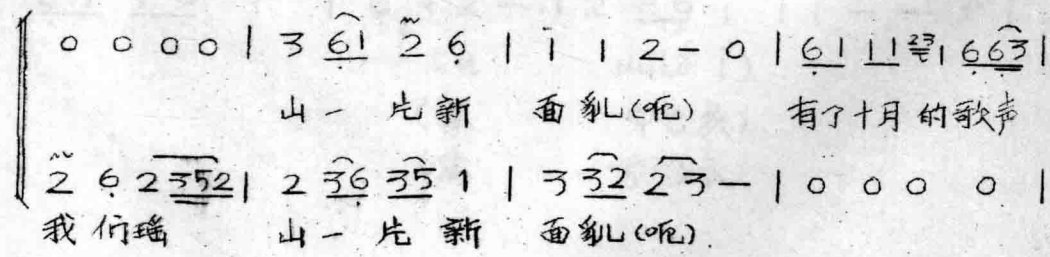 0 0 0 0 | 3 61 2 6 | 1 1 2 - 0 | 61 11 23 1 663 |
山 一 片 新 面 貌 (呃) 有了十月 的歌声
2 6 2 352 | 2 36 35 1 | 3 32 23 - | 0 0 0 0 |
我 们 瑶 山 一 片 新 面 貌 (呃)